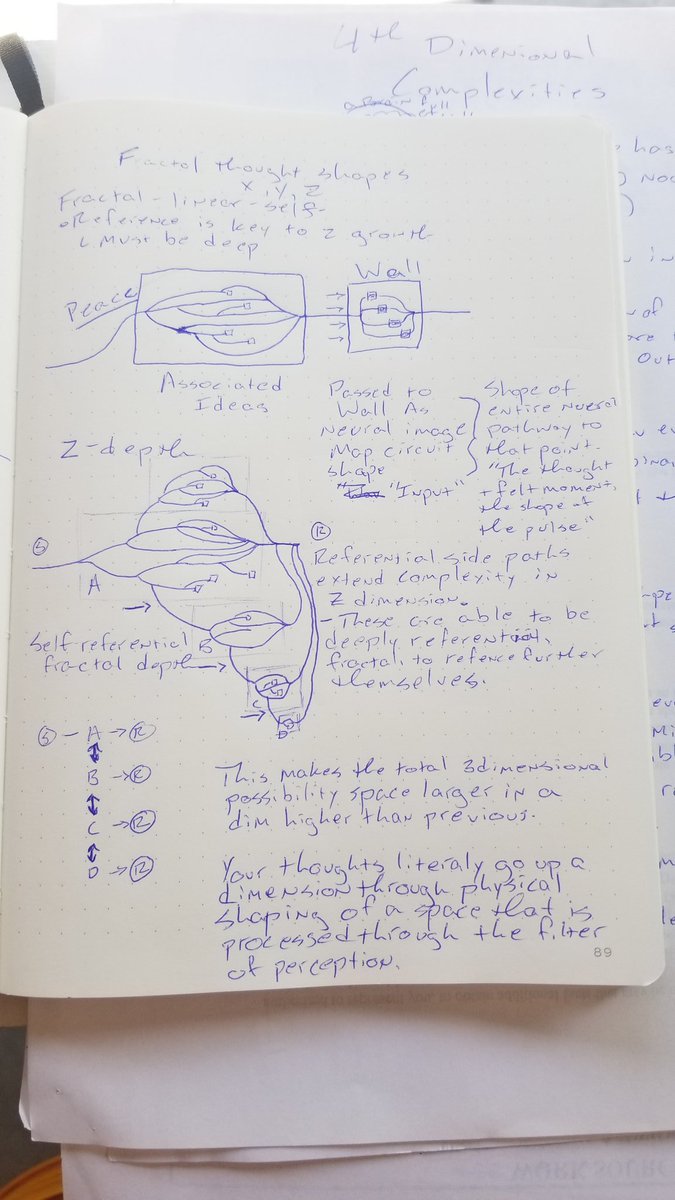 4th Dimenional
Complexities
Fractal thought shapes
x, y, z
Fractal - linear - self-
Reference is key to z growth
L Must be deep
Peace
Wall
Associated
Ideas
Passed to
Wall As
Neural image
Map circuit
shape
"Input"
Shape of
entire neural
pathway to
that point.
"The thought
+ felt moment,
the shape of
the pulse"
Z-depth
S
A
R
Referential side paths
extend complexity in
Z dimension.
- These are able to be
deeply referential,
fractal, to refence further
themselves.
Self referential B
fractal depth
C
D
S - A → R
B → R
C → R
D → R
This makes the total 3dimensional
possibility space larger in a
dim higher than previous.
Your thoughts literaly go up a
dimension through physical
shaping of a space that is
processed through the filter
of perception.
89
has
Out
WORK SOURC